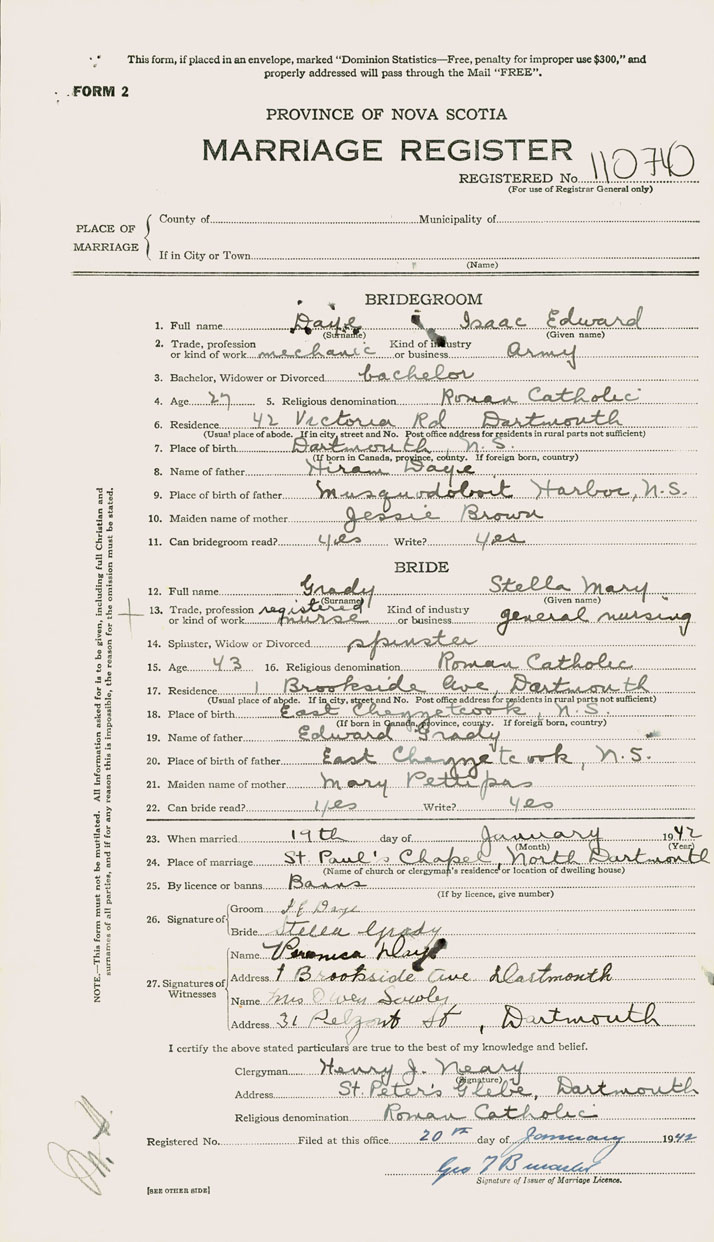 This form, if placed in an envelope, marked "Dominion Statistics—Free, penalty for improper use $300," and
properly addressed will pass through the Mail "FREE".
FORM 2
PROVINCE OF NOVA SCOTIA
MARRIAGE REGISTER
REGISTERED No. 110740
(For use of Registrar General only)
PLACE OF MARRIAGE
County of Municipality of
If in City or Town
(Name)
BRIDEGROOM
1. Full name Daye Isaac Edward
(Surname) (Given name)
2. Trade, profession or kind of work mechanic Kind of industry or business Army
3. Bachelor, Widower or Divorced bachelor
4. Age 27 5. Religious denomination Roman Catholic
6. Residence 42 Victoria Rd Dartmouth
(Usual place of abode. If in city, street and No. Post office address for residents in rural parts not sufficient)
7. Place of birth Dartmouth, N.S.
(If born in Canada, province, county. If foreign born, country)
8. Name of father Hiram Daye
9. Place of birth of father Musquodoboit Harbor, N.S.
10. Maiden name of mother Jessie Brown
11. Can bridegroom read? yes Write? yes
BRIDE
12. Full name Grady Stella Mary
(Surname) (Given name)
13. Trade, profession or kind of work registered nurse Kind of industry or business general nursing
14. Spinster, Widow or Divorced spinster
15. Age 43 16. Religious denomination Roman Catholic
17. Residence 1 Brookside Ave, Dartmouth
(Usual place of abode. If in city, street and No. Post office address for residents in rural parts not sufficient)
18. Place of birth East Chezzetcook, N.S.
(If born in Canada, province, county. If foreign born, country)
19. Name of father Edward Grady
20. Place of birth of father East Chezzetcook, N.S.
21. Maiden name of mother Mary Pettipas
22. Can bride read? yes Write? yes
23. When married 19th day of January 1942
(Month) (Year)
24. Place of marriage St. Paul's Chapel, North Dartmouth
(Name of church or clergyman's residence or location of dwelling house)
25. By licence or banns Banns
(If by licence, give number)
26. Signature of
Groom Daye
Bride Stella Grady
27. Signatures of Witnesses
Name Veronica Daye
Address 1 Brookside Ave Dartmouth
Name Mrs Owen
Address 31 St, Dartmouth
I certify the above stated particulars are true to the best of my knowledge and belief.
Clergyman Henry J. Neary
(Signature)
Address St. Peter's Glebe, Dartmouth
Religious denomination Roman Catholic
Registered No. Filed at this office 20th day of January 1942
Geo
Signature of Issuer of Marriage Licence.
[SEE OTHER SIDE]
NOTE.—This form must not be mutilated. All information asked for is to be given, including full Christian and
surnames of all parties, and if for any reason this is impossible, the reason for the omission must be stated.